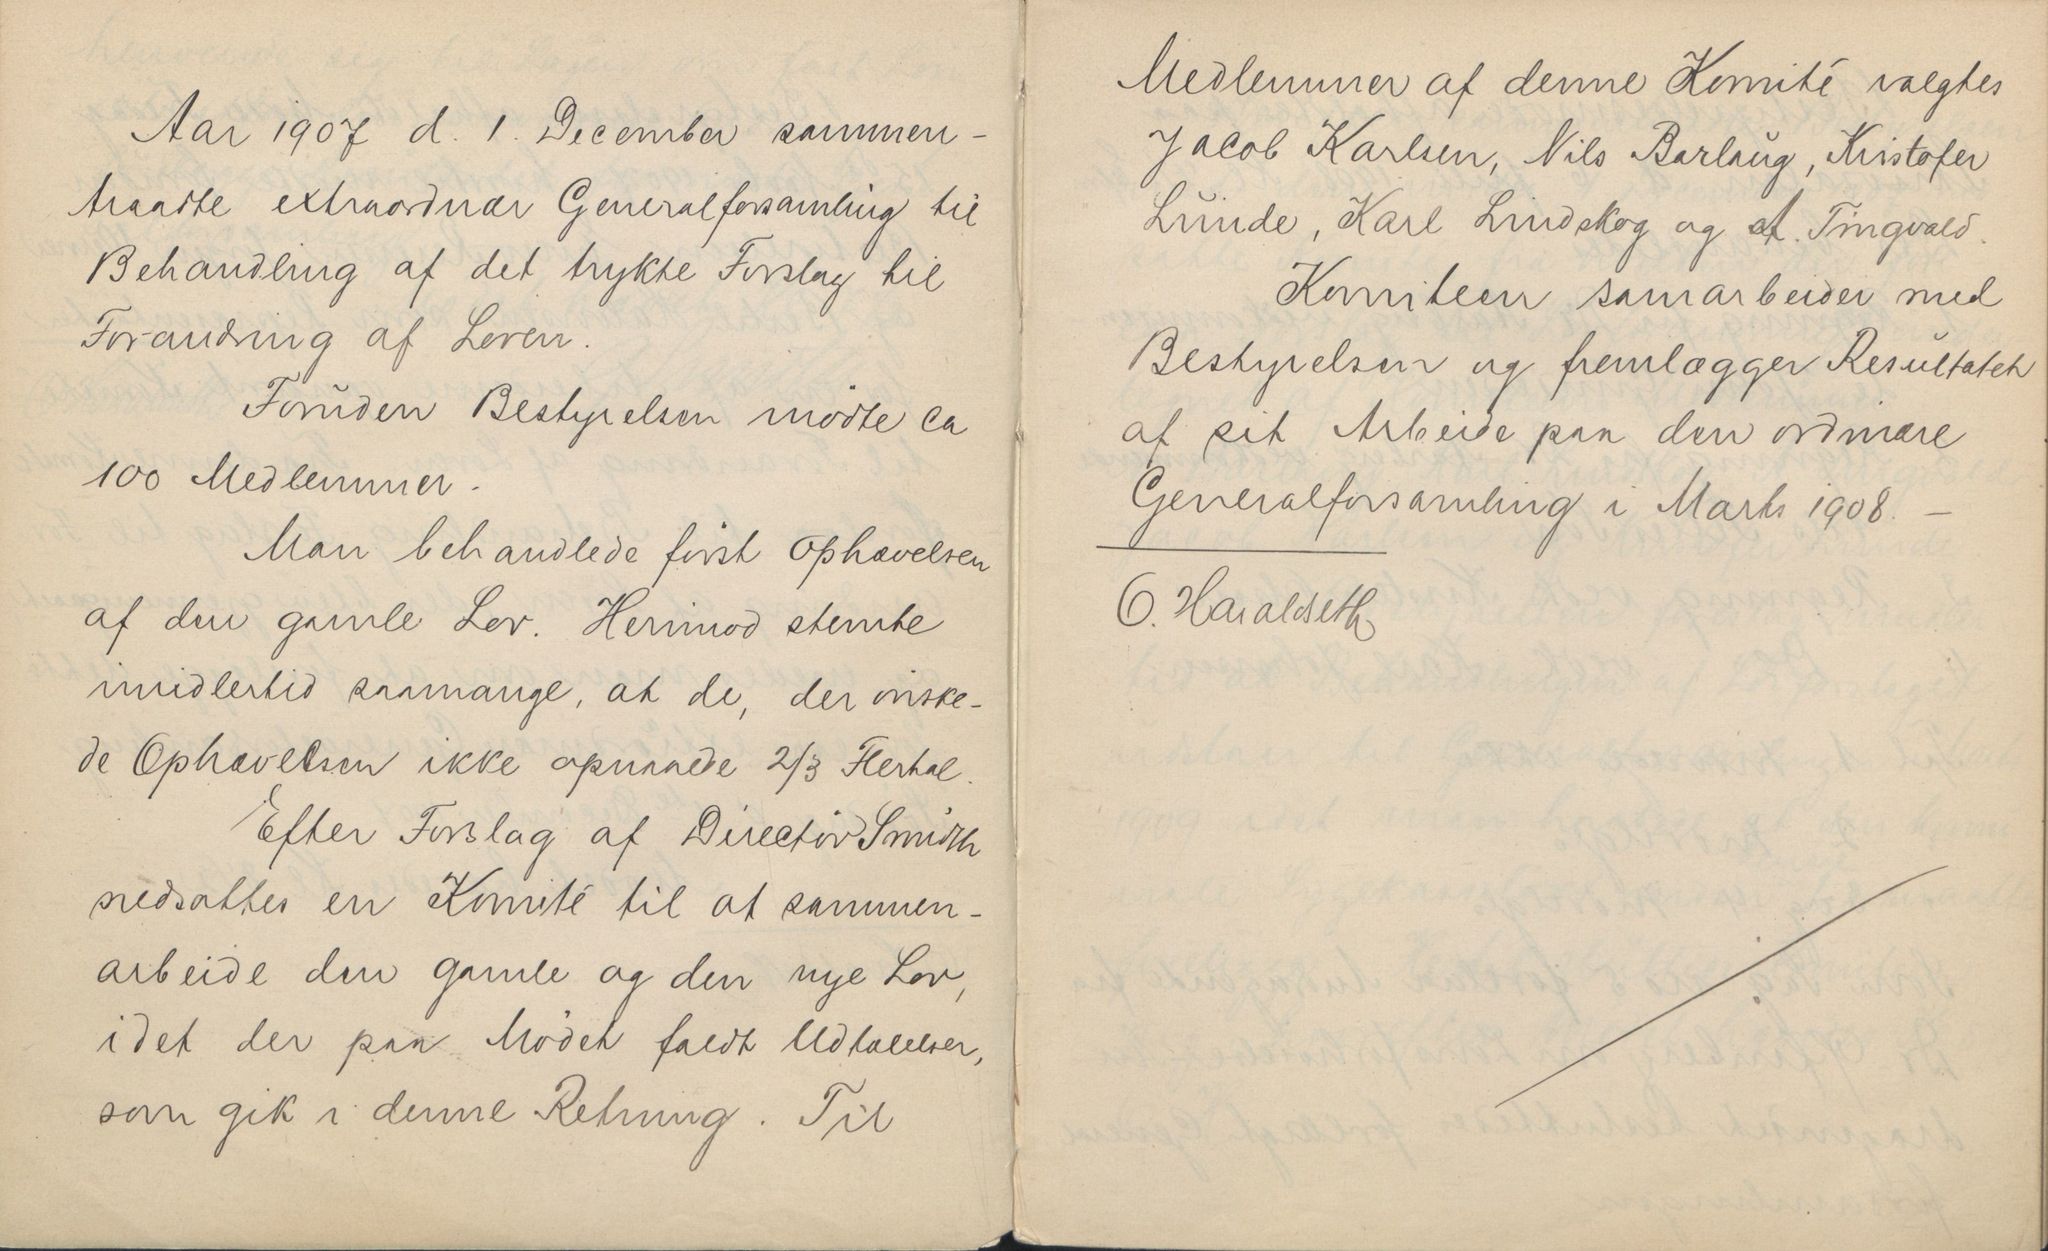 Aar 1907 d. 1. December sammen-
traadte extraordnær Generalforsamling til
Behandling af det trykte Forslag til
Forandring af Loven.
Foruden Bestyrelsen mødte ca
100 Medlemmer.
Man behandlede først Ophævelsen
af den gamle Lov. Herimod stemte
imidlertid saamange, at de, der ønske-
de Ophævelsen ikke opnaaede 2/3 Flertal.
Efter Forslag af Directør Smidth
nedsattes en Komité til at sammen-
arbeide den gamle og den nye Lov,
idet der paa Mødet faldt Udtalelser,
som gik i denne Retning. Til
Medlemmer af denne Komité valgtes
Jacob Karlsen, Nils Barlaug, Kristofer
Lunde, Karl Lindskog og A. Tingvald.
Komiteen samarbeider med
Bestyrelsen og fremlægger Resultatet
af sit Arbeide paa den ordinære
Generalforsamling i Marts 1908. —
O. Haraldseth